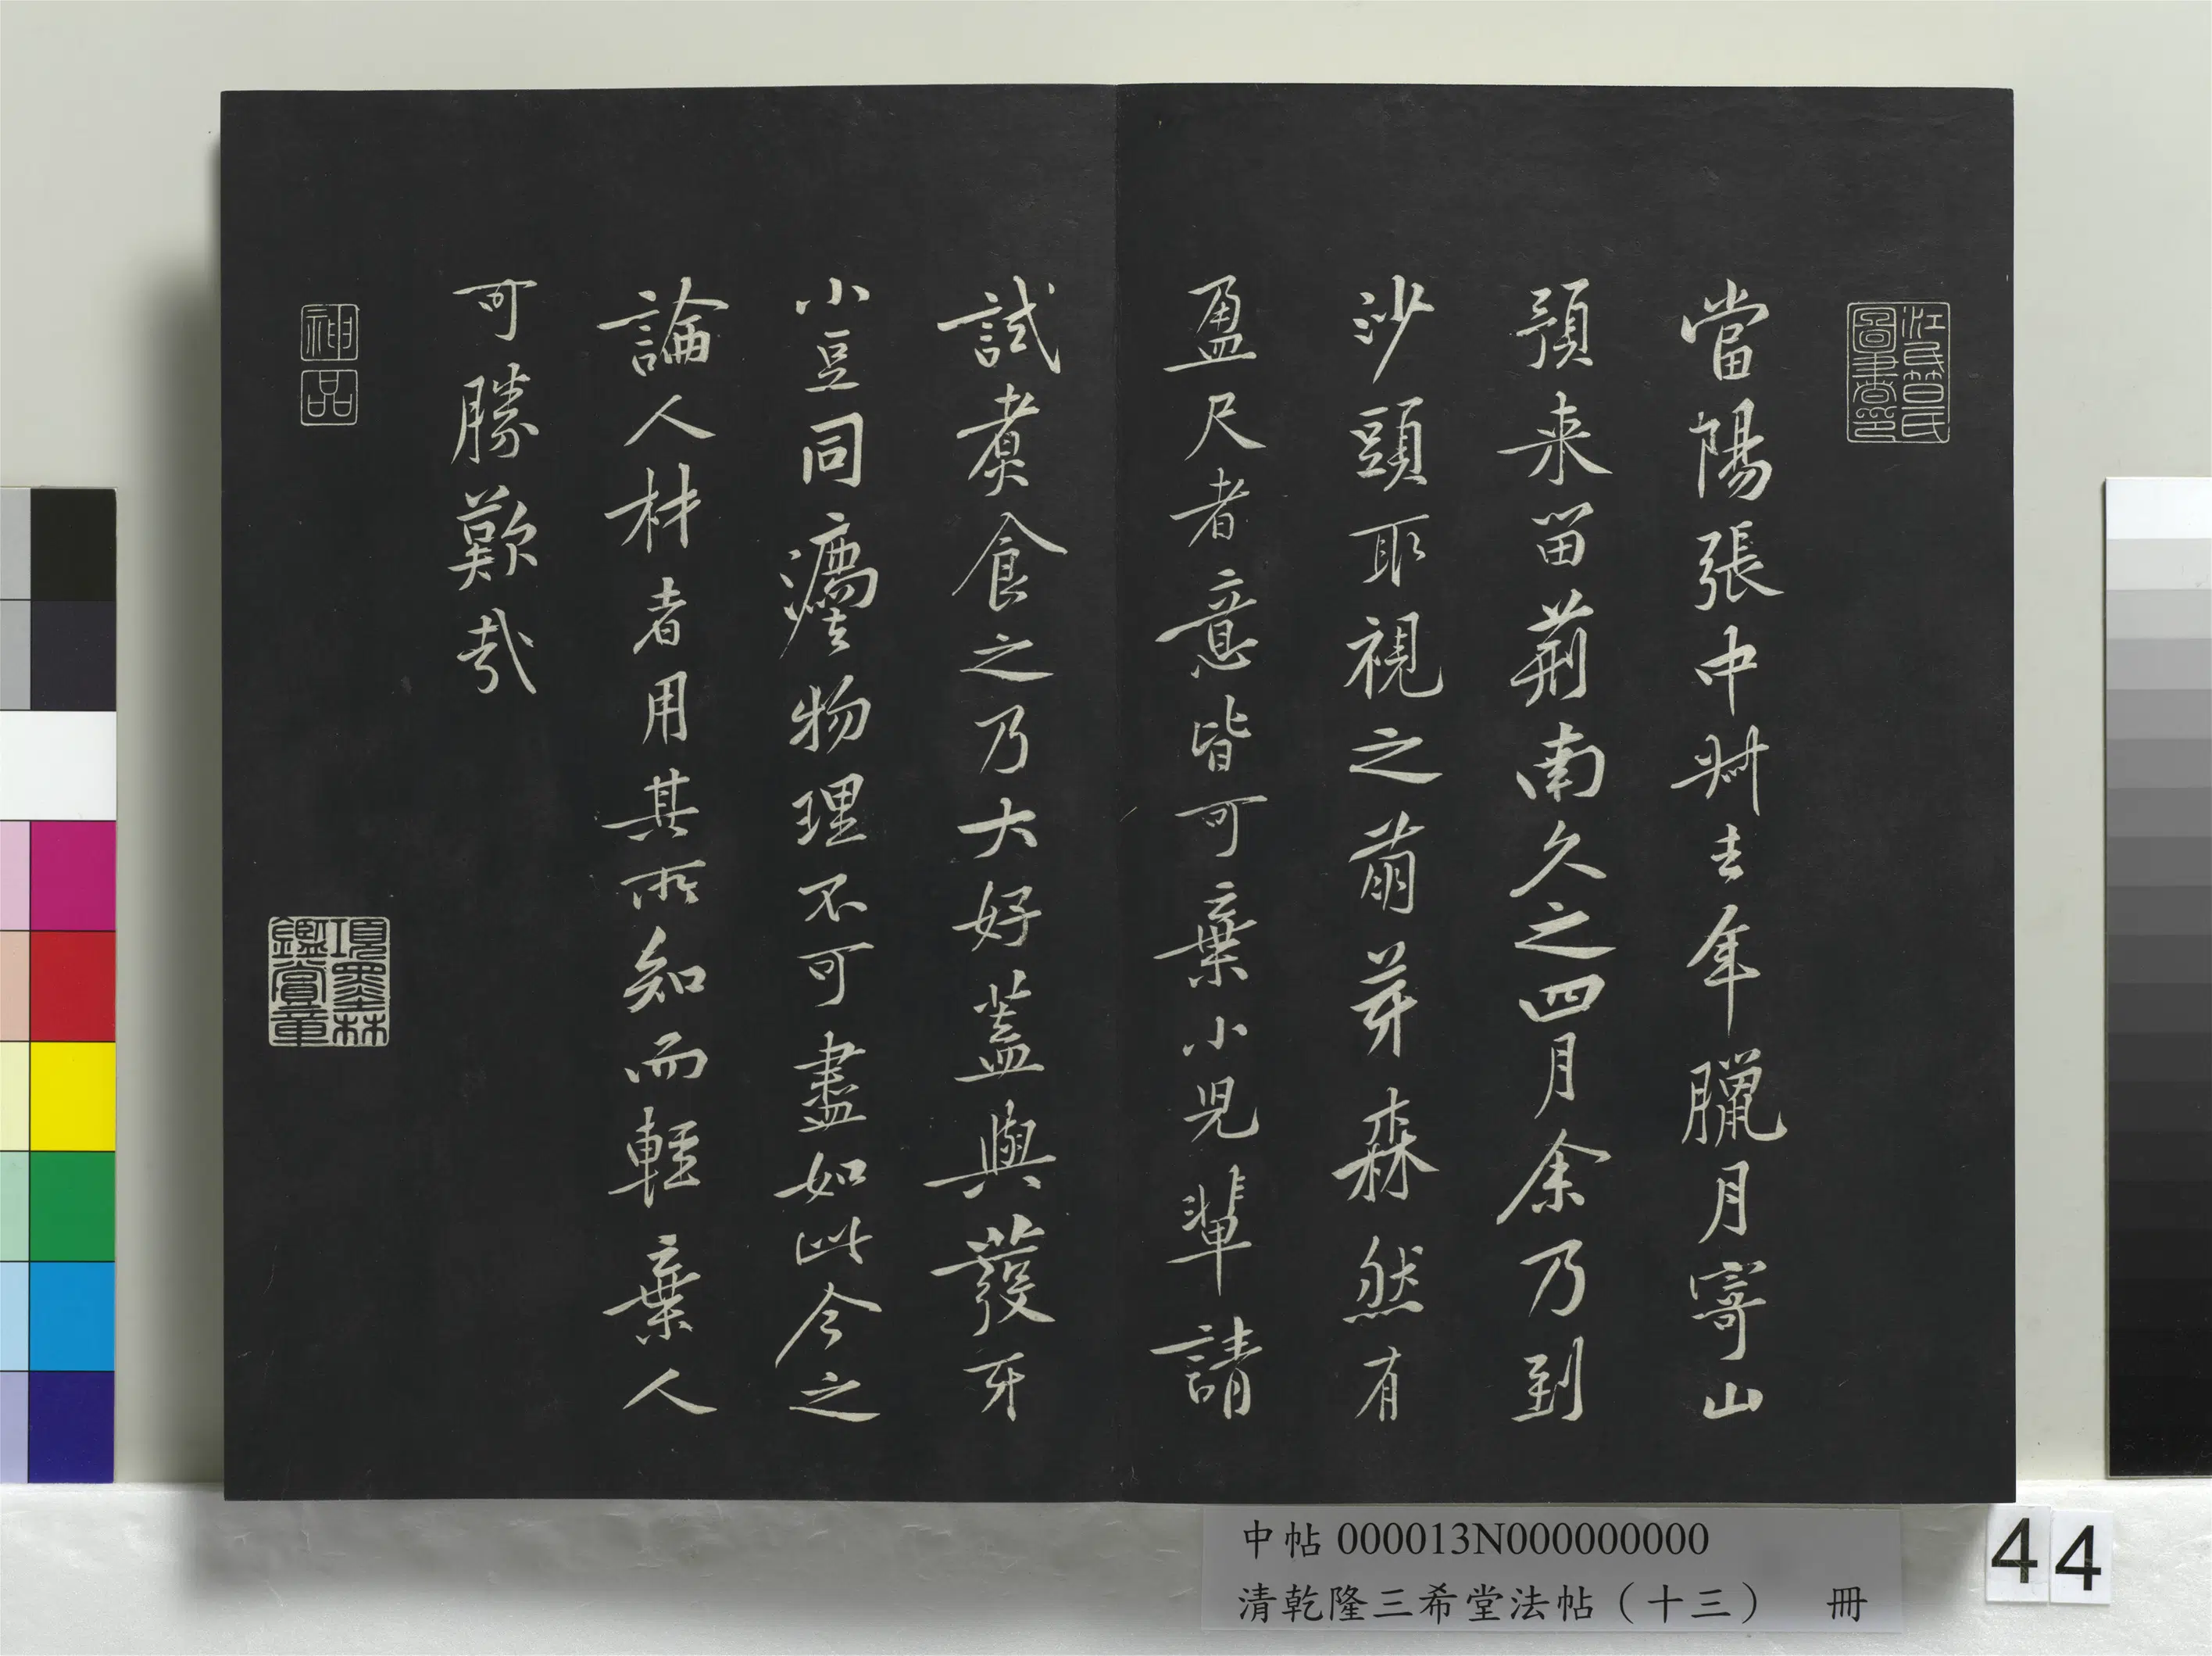 當陽張中州去年臘月寄山
預来留荊南久之四月余乃到
沙頭取視之萌芽森然有
盈尺者意皆可棄小兒輩請
試煮食之乃大好蓋與發牙
小豆同灋物理不可盡如此今之
論人材者用其所知而輕棄人
可勝歎哉
神品
項墨林鑑賞章
中帖 000013N000000000
清乾隆三希堂法帖（十三） 冊
44